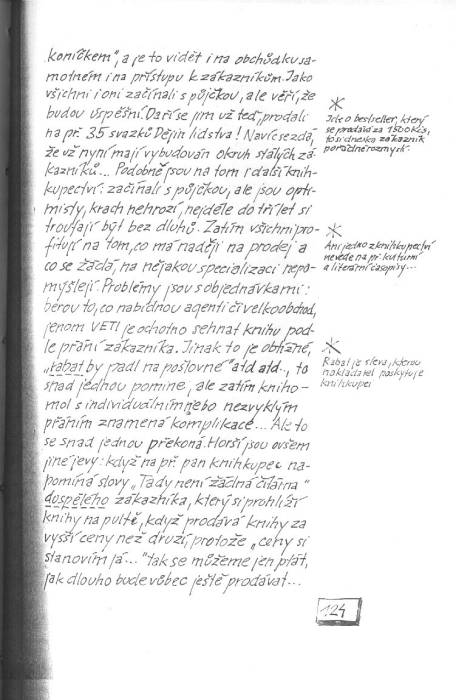 koníčkem", a je to vidět i na obchůdku sa-
motném i na přístupu k zákazníkům. Jako
všichni i oni začínali s půjčkou, ale věří, že
budou úspěšní. Daří se jim už teď, prodali
na př. 35 svazků Dějin lidstva! Navíc se zdá,
že už nyní mají vybudován okruh stálých zá-
kazníků... Podobně jsou na tom i další knih-
kupectví: začínali s půjčkou, ale jsou opti-
misty, krach nehrozí, nejdéle do tří let si
troufají být bez dluhů. Zatím všichni pro-
fitují na tom, co má naději na prodej a
co se žádá, na nějakou specializaci nepo-
mýšlejí. Problémy jsou s objednávkami:
berou to, co nabídnou agenti či velkoobchod,
jenom VETI je ochotno sehnat knihu pod-
le přání zákazníka. Jinak to je obtížné,
„rabat by padl na poštovné" atd atd.., to
snad jednou pomine, ale zatím kniho-
mol s individuálním nebo nezvyklým
přáním znamená komplikace... Ale to
se snad jednou překoná. Horší jsou ovšem
jiné jevy: když na př. pan knihkupec na-
pomíná slovy „Tady není žádná čítárna"
dospělého zákazníka, který si prohlíží
knihy na pultě, když prodává knihy za
vyšší ceny než druzí, protože „ceny si
stanovím já..." tak se můžeme jen ptát,
jak dlouho bude vůbec ještě prodávat...
*
Jde o bestseller, který
se prodává za 1500 Kčs,
to si dneska zákazník
pořádně rozmyslí.
*
Ani jedno z knihkupectví
nevede na př. kulturní
a literární časopisy...
*
Rabat je sleva, kterou
nakladatel poskytuje
knihkupci
124